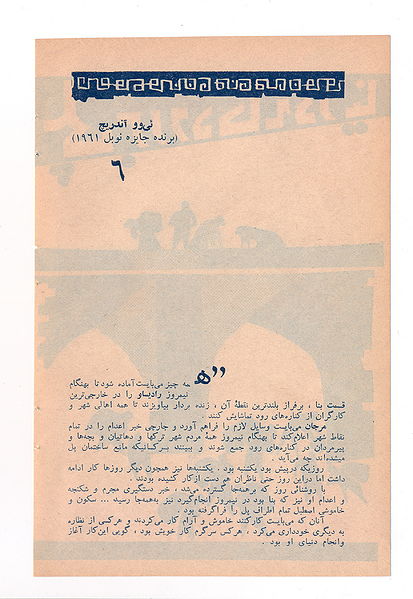 ئی‌وو آندریچ
(برنده جایزه نوبل ۱۹۶۱)
۶
«همه چیز می‌بایست آماده شود تا بهنگام
نیمروز رادیساو را در خارجی‌ترین
قسمت بنا ، برفراز بلندترین نقطهٔ آن ، زنده بردار بیاویزند تا همه اهالی شهر و
کارگران از کناره‌های رود تماشایش کنند .
مرجان می‌بایست وسایل لازم را فراهم آورد و جارچی خبر اعدام را در تمام
نقاط شهر اعلام‌کند تا بهنگام نیمروز همهٔ مردم شهر ترکها و دهاتیان و بچه‌ها و
پیرمردان در کناره‌های رود جمع شوند و ببینند برکسانیکه مانع ساختمان پل
میشده‌اند چه می‌آید .
روزیکه درپیش بود یکشنبه بود . یکشنبه‌ها نیز همچون دیگر روزها کار ادامه
داشت اما دراین روز حتی ناظران هم دست ازکار کشیده بودند .
با روشنائی روز که برهمه‌جا گسترده می‌شد ، خبر دستگیری مجرم و شکنجه
و اعدام او نیز که بنا بود در نیمروز انجام‌گیرد نیز به‌همه‌جا رسید ... سکون و
خاموشی اصطبل تمام اطراف پل را فراگرفته بود .
آنان که می‌بایست کارکنند خاموش و آرام کار می‌کردند و هرکسی از نظاره
به دیگری خودداری می‌کرد ، هرکس سرگرم کار خویش بود ، گویی این‌کار آغاز
وانجام دنیای او بود .